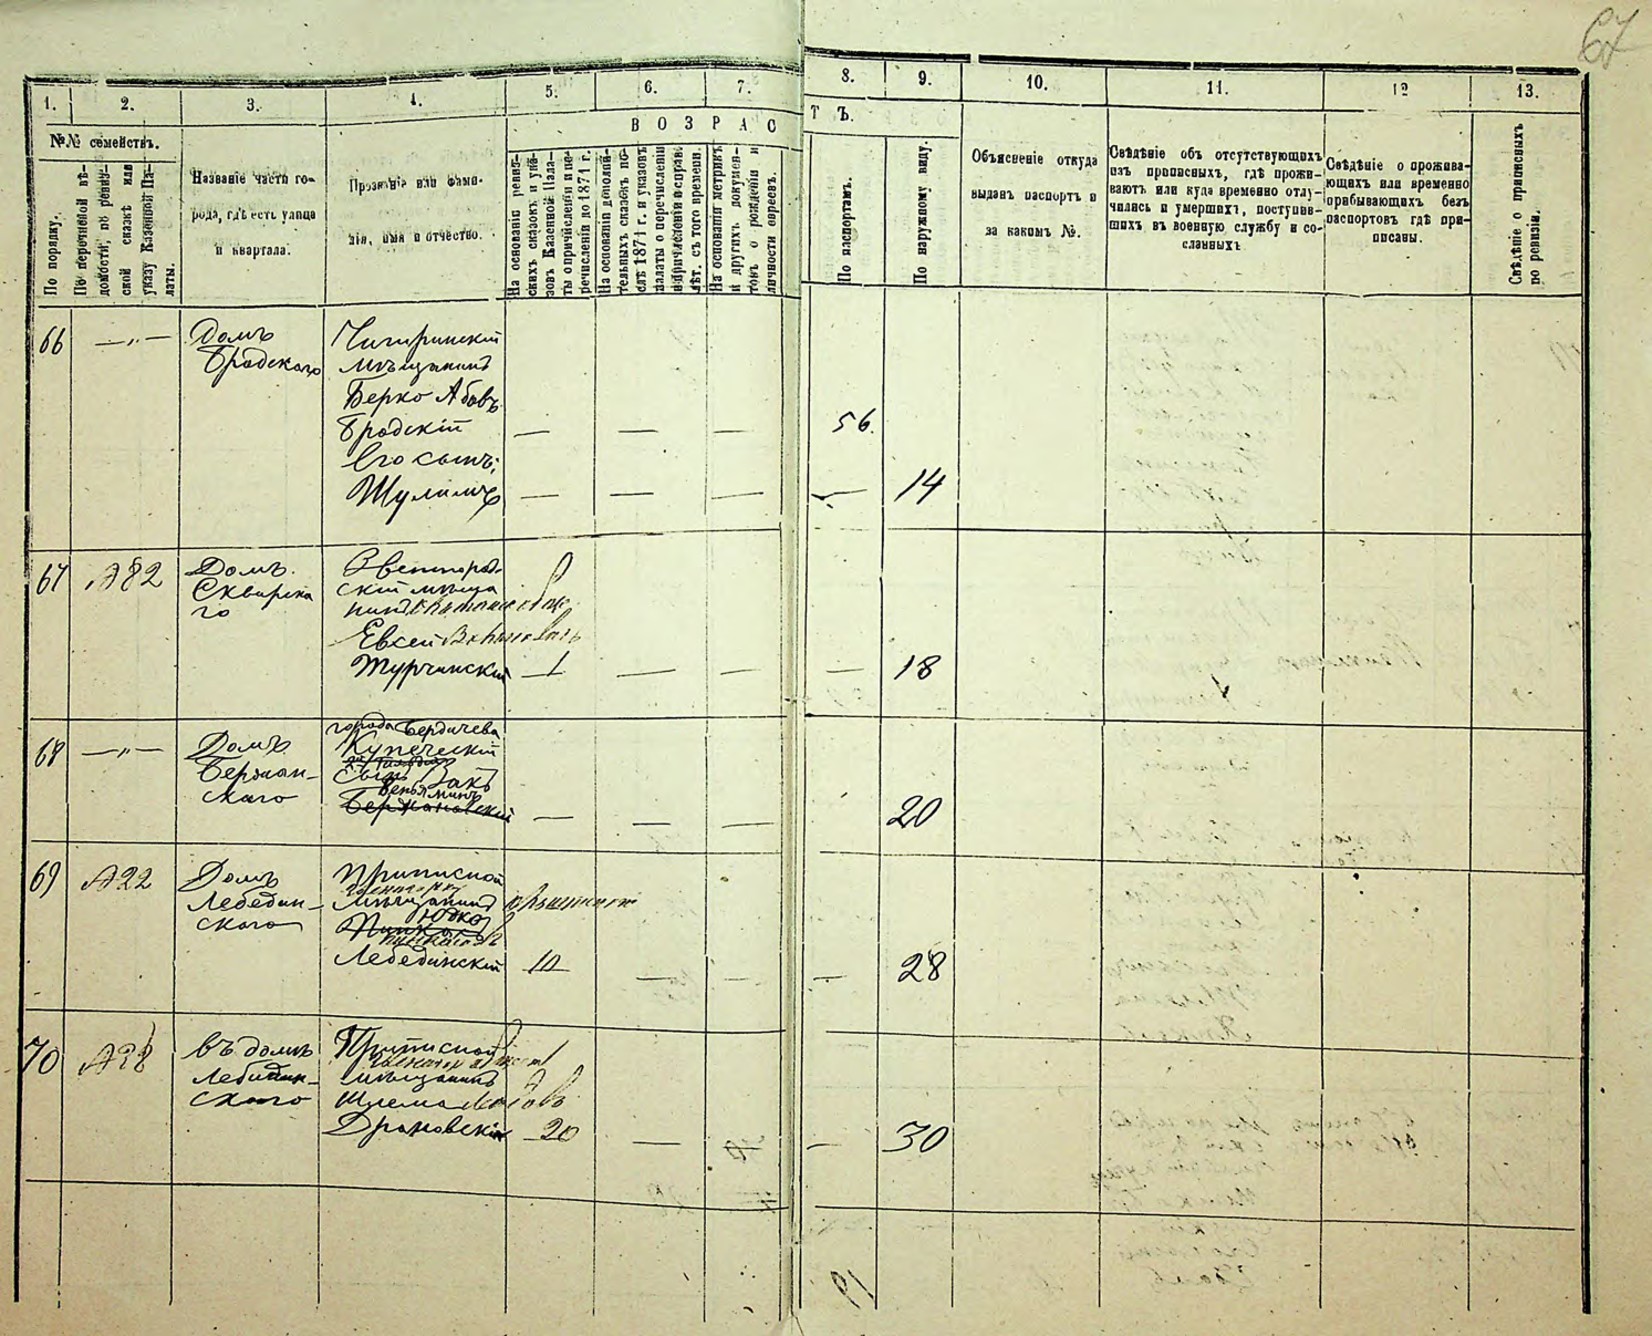 67
1. 2. 3. 4. 5. 6. 7. 8. 9. 10. 11. 12 13.
№№ семействъ.
В О З Р А С Т Ъ.
По порядку.
По перечневой вѣ-
домости, по ревиз-
ской сказкѣ или
указу Казенной Па-
латы.
Названіе части го-
рода, гдѣ есть улица
и квартала.
Прозваніе или фами-
лія, имя и отчество.
На основаніи ревиз-
скихъ сказокъ и ука-
зовъ Казенной Пала-
ты о причисленіи и пе-
речисленіи до 1871 г.
На основаніи дополни-
тельныхъ сказокъ по-
слѣ 1871 г. и указовъ
палаты о перечисленіи
и причисленіи и справ.
лѣт. съ того времени.
На основаніи метрикъ
и другихъ докумен-
товъ о рожденіи и
личности евреевъ.
По паспортамъ.
По наружному виду.
Объясненіе откуда
выданъ паспортъ и
за какимъ №.
Свѣдѣніе объ отсутствующихъ
изъ приписныхъ, гдѣ прожи-
ваютъ или куда временно отлу-
чились и умершихъ, поступив-
шихъ въ военную службу и со-
сланныхъ
Свѣдѣніе о прожива-
ющихъ или временно
прибывающихъ безъ
паспортовъ гдѣ при-
писаны.
Свѣдѣніе о приписныхъ
по ревизіи.
66 — „ — Домъ Чигиринскій
Бродскаго мѣщанинъ
Берко Абовъ
Бродскій — — — 56.
Его сынъ:
Шулимъ — — — — 14
67 № 82 Домъ Звенигород-
Сквирска скій мѣща
го нинъ
Евсей
Турчинскій 1 — — — 18
68 — „ — Домъ города Бердичева
Купеческій
Бержан- сынъ Вакъ
скаго Веньяминъ
Бержановскій — — — 20
69 № 22 Домъ Приписной
Лебедин- мѣщанинъ
скаго Юдко
Лебединскій 10 — — — 28
70 № 28 въ домѣ Приписной
Лебидин- мѣщанинъ
скаго Шлема
Драновскій 20 — — 30